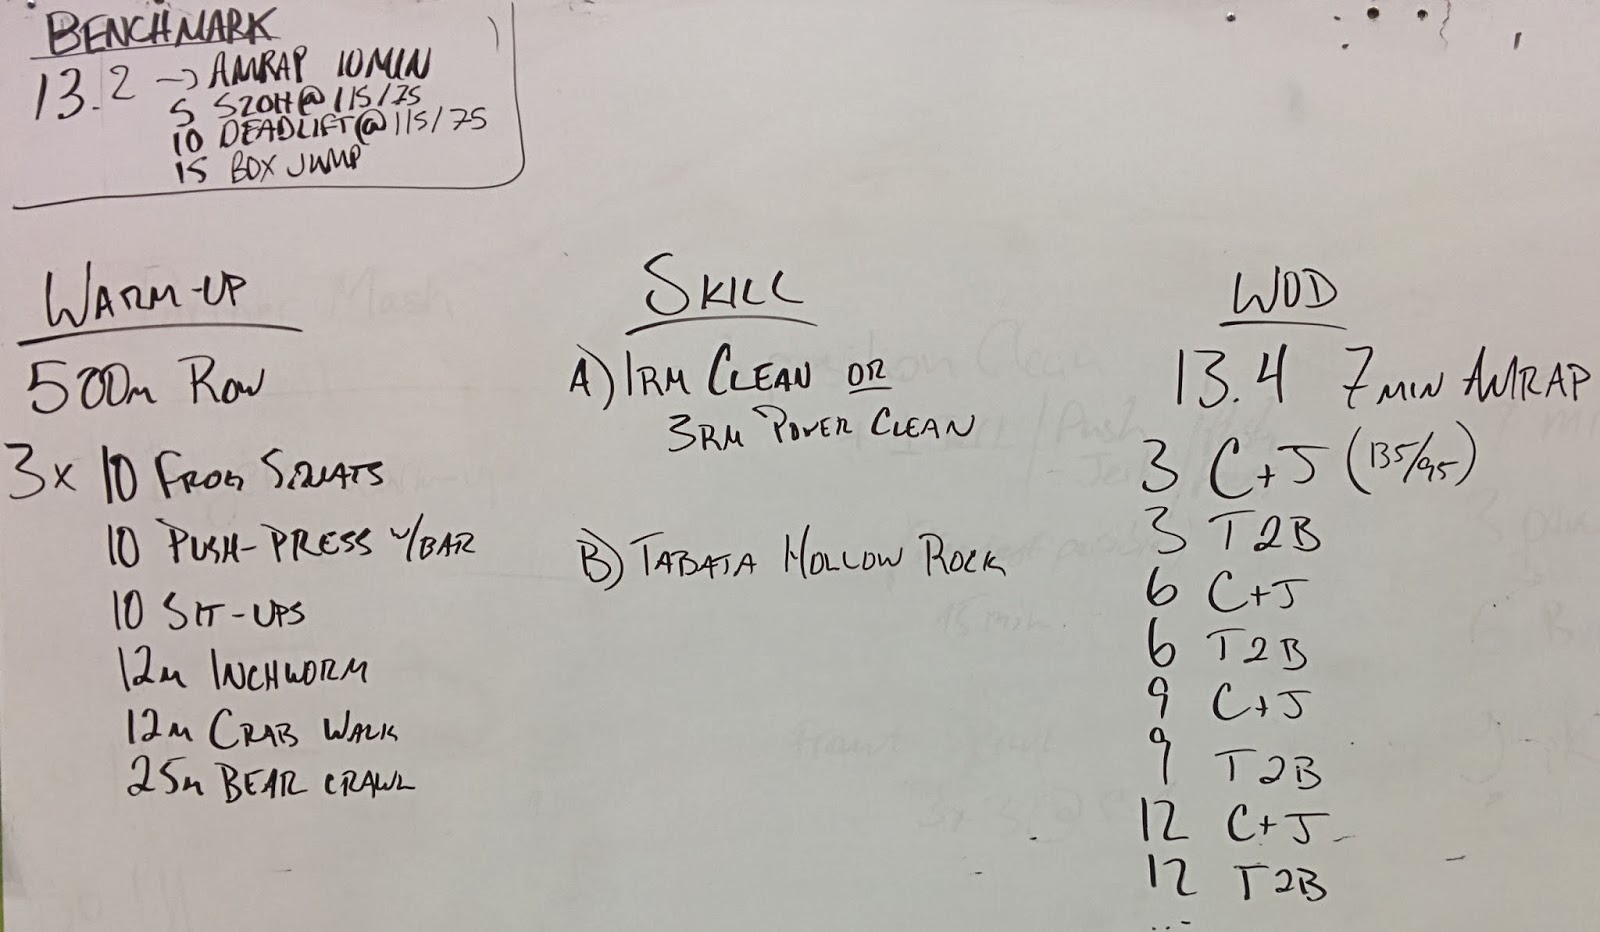 BENCHMARK
13.2 -> AMRAP 10MIN
5 S2OH@115/75
10 DEADLIFT@115/75
15 BOX JUMP
WARM-UP
500m ROW
3x 10 FROG SQUATS
10 PUSH-PRESS w/BAR
10 SIT-UPS
12m INCHWORM
12m CRAB WALK
25m BEAR CRAWL
SKILL
A) 1RM CLEAN OR
3RM POWER CLEAN
B) TABATA HOLLOW ROCK
WOD
13.4 7MIN AMRAP
3 C+J (135/95)
3 T2B
6 C+J
6 T2B
9 C+J
9 T2B
12 C+J
12 T2B
...